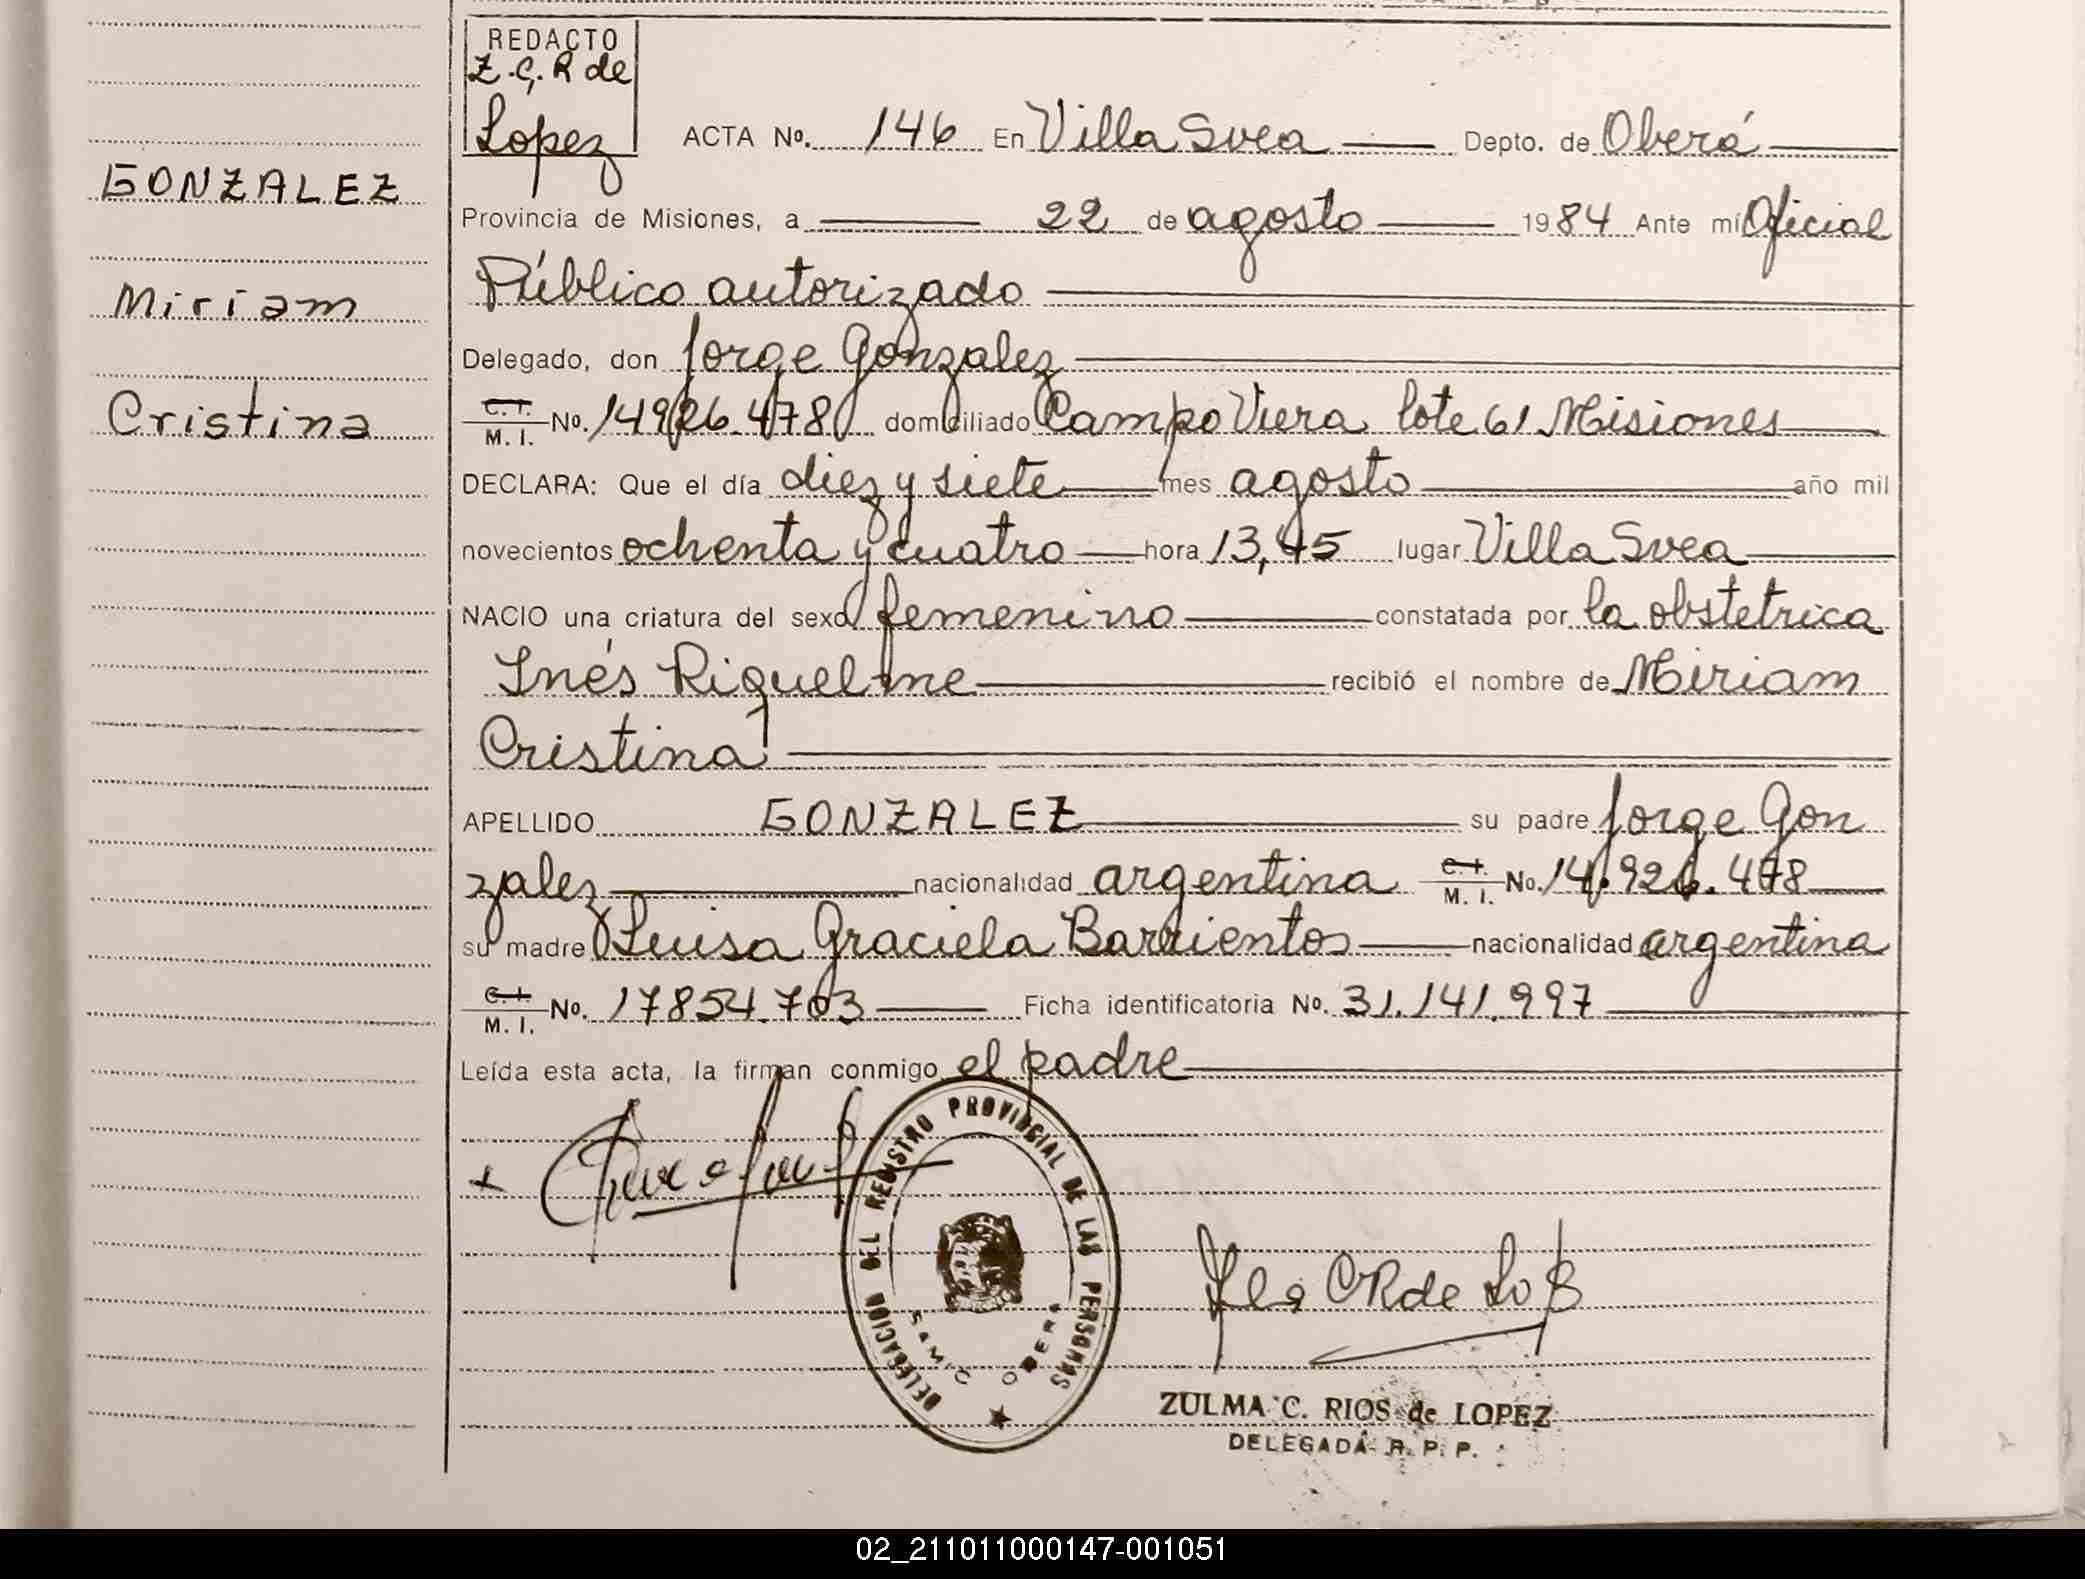 REDACTO
Z.C.R de
Lopez
GONZALEZ
Miriam
Cristina
ACTA No. 146 En Villa Svea Depto. de Oberá
Provincia de Misiones, a 22 de agosto 1984 Ante mí Oficial
Público autorizado
Delegado, don Jorge Gonzalez
C.I. M. I. No. 14926.478 domiciliado Campo Viera lote 61 Misiones
DECLARA: Que el día diez y siete mes agosto año mil
novecientos ochenta y cuatro hora 13,45 lugar Villa Svea
NACIO una criatura del sexo femenino constatada por la obstetrica
Inés Riquelme recibió el nombre de Miriam
Cristina
APELLIDO GONZALEZ su padre Jorge Gon
zalez nacionalidad argentina C.I. M. I. No. 14.926.478
su madre Luisa Graciela Barrientos nacionalidad argentina
C.I. M. I. No. 17854.703 Ficha identificatoria No. 31.141.997
Leída esta acta, la firman conmigo el padre
DELEGACION DEL REGISTRO PROVINCIAL DE LAS PERSONAS
ZULMA C. RIOS de LOPEZ
DELEGADA R. P. P.
02_211011000147-001051